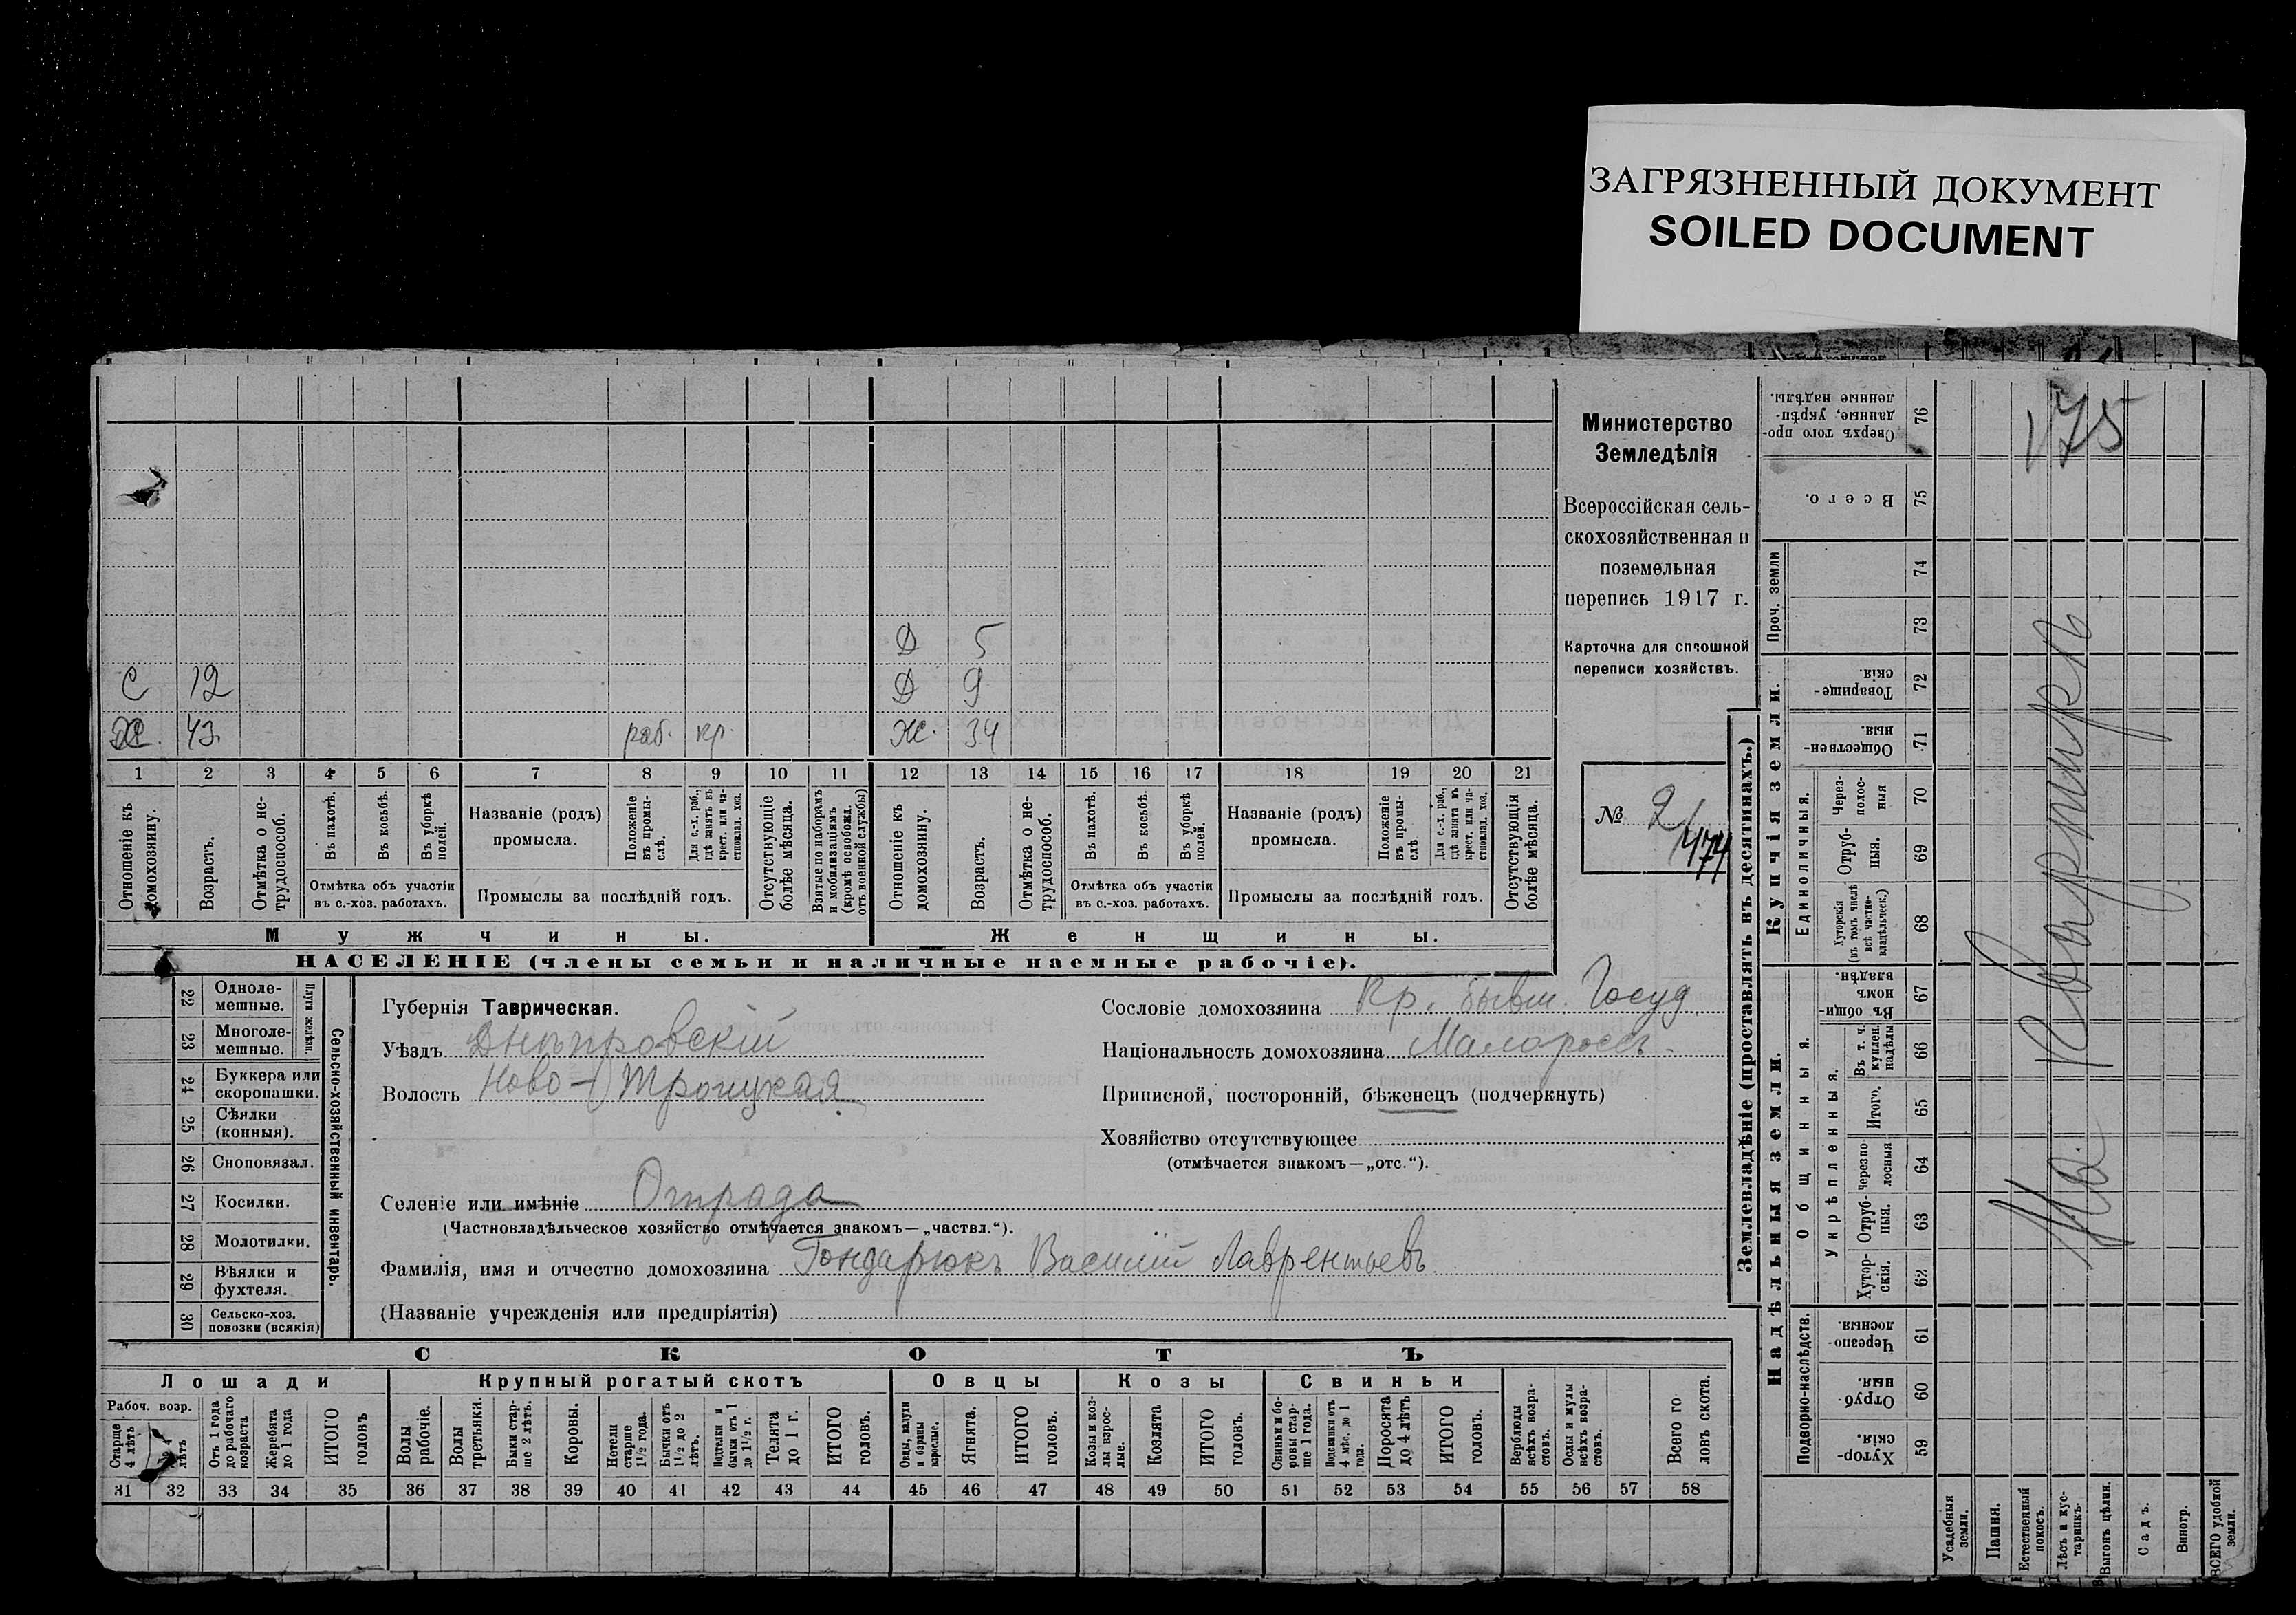 ЗАГРЯЗНЕННЫЙ ДОКУМЕНТ
SOILED DOCUMENT
Министерство
Земледѣлія
Всероссійская сель-
скохозяйственная и
поземельная
перепись 1917 г.
Карточка для сплошной
переписи хозяйствъ.
№ 2/474
Д 5
С 12 Д 9
43. раб. кр. Ж. 34
1 2 3 4 5 6 7 8 9 10 11 12 13 14 15 16 17 18 19 20 21
Отношеніе къ домохозяину.
Возрастъ.
Отмѣтка о не-трудоспособ.
Въ пахотѣ.
Въ косьбѣ.
Въ уборкѣ полей.
Отмѣтка объ участіи
въ с.-хоз. работахъ.
Названіе (родъ)
промысла.
Положеніе въ промы-слѣ.
Для с.-х. раб., гдѣ занятъ въ крест. или ча-стновлад. хоз.
Промыслы за послѣдній годъ.
Отсутствующіе болѣе мѣсяца.
Взятые по наборамъ и мобилизаціямъ (кромѣ освобожд. отъ военной службы)
Отношеніе къ домохозяину.
Возрастъ.
Отмѣтка о не-трудоспособ.
Въ пахотѣ.
Въ косьбѣ.
Въ уборкѣ полей.
Отмѣтка объ участіи
въ с.-хоз. работахъ.
Названіе (родъ)
промысла.
Положеніе въ промы-слѣ
Для с.-х. раб., гдѣ занята въ крест. или ча-стновлад. хоз.
Промыслы за послѣдній годъ.
Отсутствующія болѣе мѣсяца.
Мужчины.
Женщины.
НАСЕЛЕНІЕ (члены семьи и наличные наемные рабочіе).
22 Одноле-мешные.
23 Многоле-мешные.
Плуги желѣзн.
24 Буккера или скоропашки.
25 Сѣялки (конныя).
26 Сноповязал.
27 Косилки.
28 Молотилки.
29 Вѣялки и фухтеля.
30 Сельско-хоз. повозки (всякія)
Сельско-хозяйственный инвентарь.
Губернія Таврическая.
Уѣздъ Днѣпровскій
Волость Ново-Троицкая
Сословіе домохозяина Кр. бывш. Госуд.
Національность домохозяина Малороссъ.
Приписной, посторонній, бѣженецъ (подчеркнуть)
Хозяйство отсутствующее
(отмѣчается знакомъ—„отс.“).
Селеніе или имѣніе Отрада
(Частновладѣльческое хозяйство отмѣчается знакомъ—„частвл.“).
Фамилія, имя и отчество домохозяина Гондарюкъ Василій Лаврентьевъ
(Названіе учрежденія или предпріятія)
СКОТЪ
Лошади
Крупный рогатый скотъ
Овцы
Козы
Свиньи
Рабоч. возр.
Старше 4 лѣтъ
До 4 лѣтъ
Отъ 1 года до рабочаго возраста
Жеребята до 1 года
ИТОГО головъ
Волы рабочіе.
Волы третьяки.
Быки стар-ше 2 лѣтъ.
Коровы.
Нетели старше 1½ года.
Бычки отъ 1½ до 2 лѣтъ.
Подтелки и бычки отъ 1 до 1½ г.
Телята до 1 г.
ИТОГО головъ.
Овцы, валухи и бараны взрослые.
Ягнята.
ИТОГО головъ.
Козы и коз-лы взрос-лые.
Козлята
ИТОГО головъ.
Свиньи и бо-ровы стар-ше 1 года.
Подсвинки отъ 4 мѣс. до 1 года.
Поросята до 4 лѣтъ
ИТОГО головъ.
Верблюды всѣхъ возра-стовъ.
Ослы и мулы всѣхъ возра-стовъ.
Всего го-ловъ скота.
31 32 33 34 35 36 37 38 39 40 41 42 43 44 45 46 47 48 49 50 51 52 53 54 55 56 57 58
Землевладѣніе (проставлять въ десятинахъ.)
Надѣльныя земли.
Купчія земли.
Подворно-наслѣдств.
Общинныя.
Укрѣпленныя.
Единоличныя.
Проч. земли
59 Хутор-скія.
60 Отруб-ныя.
61 Черезпо-лосныя.
62 Хутор-скія.
63 Отруб-ныя.
64 Черезпо-лосныя
65 Итого.
66 Въ т. ч. куплен. надѣлы
67 Въ общин-номъ владѣн.
68 Хуторскія (въ томъ числѣ всѣ частно-владѣльческ.)
69 Отруб-ныя.
70 Через-полос-ныя
71 Обществен-ныя.
72 Товарище-скія.
73
74
75 Всего.
76 Сверхъ того про-данные, укрѣп-ленные надѣлы.
Усадебныя земли.
Пашня.
Естественный покосъ.
Лѣсъ и кус-тарникъ.
Выгонъ цѣлин.
Садъ.
Виногр.
ВСЕГО удобной земли.
На квартирѣ
175